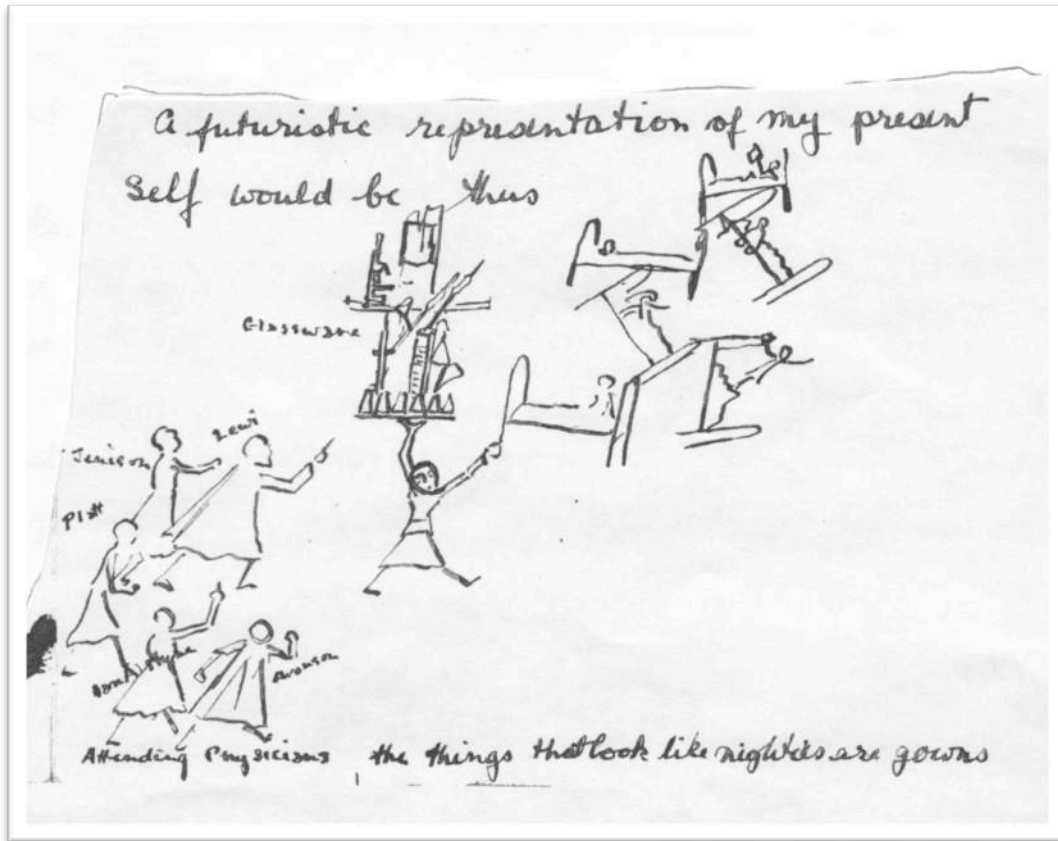 A futuristic representation of my present
self would be thus
Glassware
Lewi
Jenison
Platt
Swanson
Attending Physicians the things that look like nighties are gowns